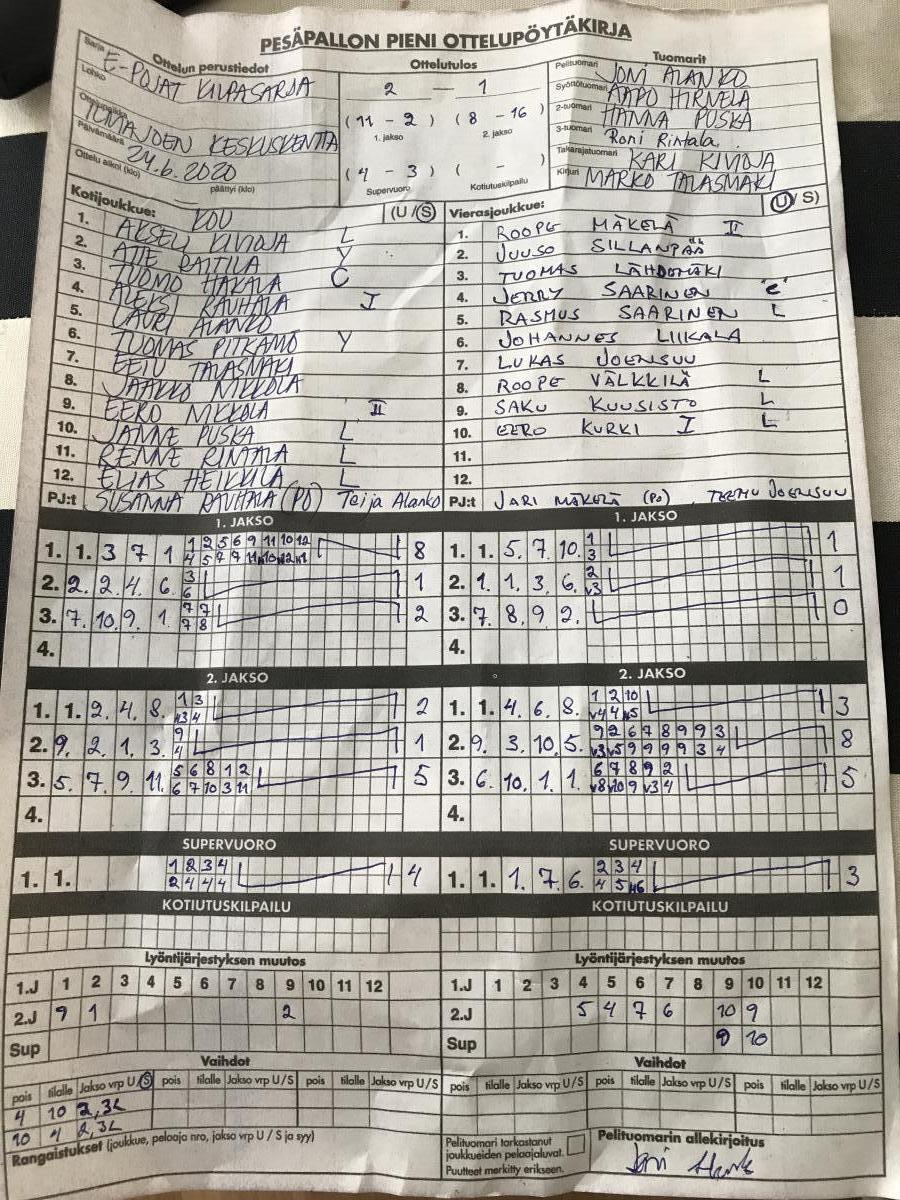 PESÄPALLON PIENI OTTELUPÖYTÄKIRJA
Ottelun perustiedot Ottelutulos Tuomarit
Sarja E-POJAT KILPASARJA
Lohko
2 — 1
Pelituomari JONI ALANKO
Syöttötuomari AAPO HIRVELÄ
2-tuomari HANNA PUSKA
3-tuomari Roni Rintala
Takarajatuomari KARI KIVIOJA
Kirjuri MARKO TALASMÄKI
Ottelupaikka KESKUSKENTTÄ
Päivämäärä 24.6.2020
Ottelu alkoi (klo) päättyi (klo)
(11 - 2) (8 - 16)
1. jakso 2. jakso
(4 - 3) ( - )
Supervuoro Kotiutuskilpailu
Kotijoukkue: (U/S) Vierasjoukkue: (U/S)
1. AKSELI KIVIOJA L
2. ATTE RAITILA Y
3. TUOMO HAKALA C
4. ALEKSI RAUHALA I
5. LAURI ALANKO
6. TUOMAS PITKÄMÖ Y
7. EETU TALASMÄKI
8. JAAKKO NIKKOLA
9. EERO NIKKOLA II
10. JANNE PUSKA L
11. RENNE RINTALA L
12. ELIAS HEIKKILÄ L
PJ:t SUSANNA RAUHALA (PO) Teija Alanko
1. ROOPE MÄKELÄ II
2. JUUSO SILLANPÄÄ
3. TUOMAS LÄHDEMÄKI
4. JERRY SAARINEN "C"
5. RASMUS SAARINEN L
6. JOHANNES LIIKALA
7. LUKAS JOENSUU
8. ROOPE VÄLKKILÄ L
9. SAKU KUUSISTO L
10. EERO KURKI I L
11.
12.
PJ:t JARI MÄKELÄ (PO), TEEMU JOENSUU
1. JAKSO 1. JAKSO
1. 1. 3 7 1 1 2 5 6 9 11 10 12 8
4 5 7 9 11 10 12 1
2. 2. 2 4 6. 3 1
6
3. 7. 10. 9. 1. 7 7 2
7 8
4.
1. 1. 5. 7. 10. 1 1
3
2. 1. 1. 3. 6. 2 1
v3
3. 7. 8. 9 2. 0
4.
2. JAKSO 2. JAKSO
1. 1. 2. 4. 8. 1 3 2
v3 4
2. 9. 2. 1. 3. 9 1
4
3. 5. 7. 9. 11. 5 6 8 1 2 5
6 7 10 3 11
4.
1. 1. 4. 6. 8. 1 2 10 3
v4 4 v5
2. 9. 3. 10. 5. 9 2 6 7 8 9 9 3 8
v3 v5 9 9 9 9 3 4
3. 6. 10. 1. 1. 6 7 8 9 2 5
v8 v10 9 v3 4
4.
SUPERVUORO SUPERVUORO
1. 1. 1 2 3 4 4
2 4 4 4
1. 1. 1. 7. 6. 2 3 4 3
4 5 v6
KOTIUTUSKILPAILU KOTIUTUSKILPAILU
Lyöntijärjestyksen muutos Lyöntijärjestyksen muutos
1.J 1 2 3 4 5 6 7 8 9 10 11 12
2.J 9 1 2
Sup
1.J 1 2 3 4 5 6 7 8 9 10 11 12
2.J 5 4 7 6 10 9
Sup 9 10
Vaihdot Vaihdot
pois tilalle Jakso vrp U/S pois tilalle Jakso vrp U/S pois tilalle Jakso vrp U/S
4 10 2,3L
10 4 2,3L
pois tilalle Jakso vrp U/S pois tilalle Jakso vrp U/S pois tilalle Jakso vrp U/S
Rangaistukset (joukkue, pelaaja nro, jakso vrp U / S ja syy)
Pelituomari tarkastanut joukkueiden pelaajaluvat.
Puutteet merkitty erikseen.
Pelituomarin allekirjoitus